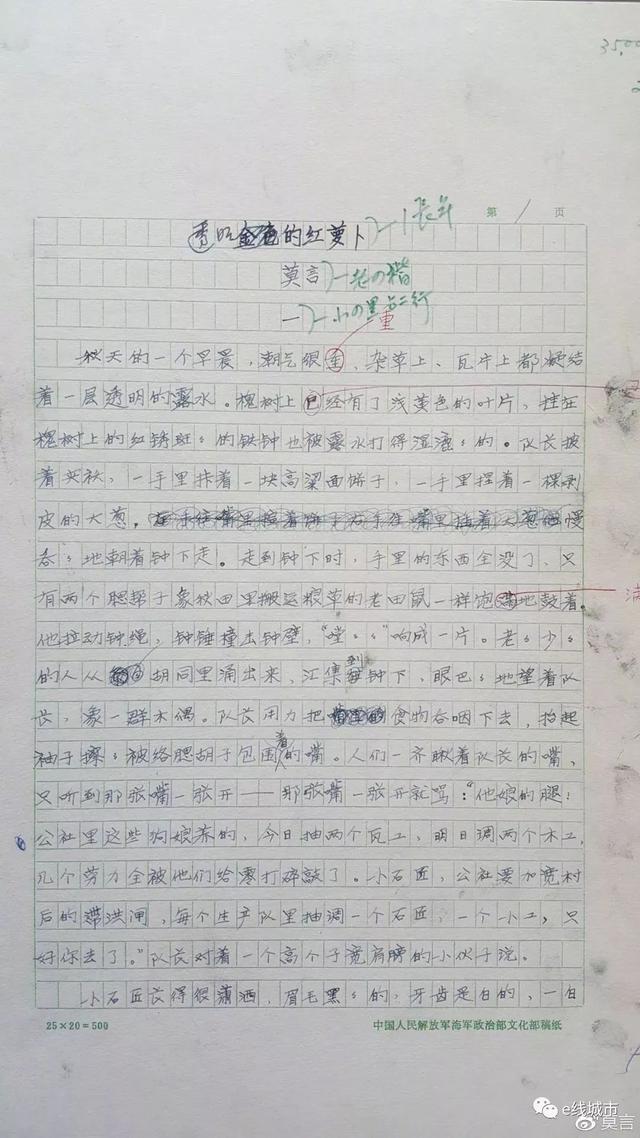 35,00
第 1 页
透明的红萝卜
莫言
一
重
秋天的一个早晨,潮气很重,杂草上、瓦片上都凝结
着一层透明的露水。槐树上已经有了浅黄色的叶片,挂在
槐树上的红锈斑〻的铁钟也被露水打得湿漉〻的。队长披
着夹袄,一手里拤着一块高粱面饼子,一手里捏着一棵剥
皮的大葱,慢
吞〻地朝着钟下走。走到钟下时,手里的东西全没了,只
有两个腮帮子象秋田里搬运粮草的老田鼠一样饱满地鼓着。
他拉动钟绳,钟锤撞击钟壁,"嘡〻〻"响成一片。老〻少〻
的人从胡同里涌出来,汇集到钟下,眼巴〻地望着队
长,象一群木偶。队长用力把食物吞咽下去,抬起
袖子擦〻被络腮胡子包围着的嘴。人们一齐瞅着队长的嘴,
只听到那张嘴一张开——那张嘴一张开就骂:"他娘的腿!
公社里这些狗娘养的,今日抽两个瓦工,明日调两个木工,
几个劳力全被他们给零打碎敲了。小石匠,公社要加宽村
后的滞洪闸,每个生产队里抽调一个石匠,一个小工,只
好你去了。"队长对着一个高个子宽肩膀的小伙子说。
小石匠长得很潇洒,眉毛黑〻的,牙齿是白的,一白
25×20=500
中国人民解放军海军政治部文化部稿纸
e线城市
莫言